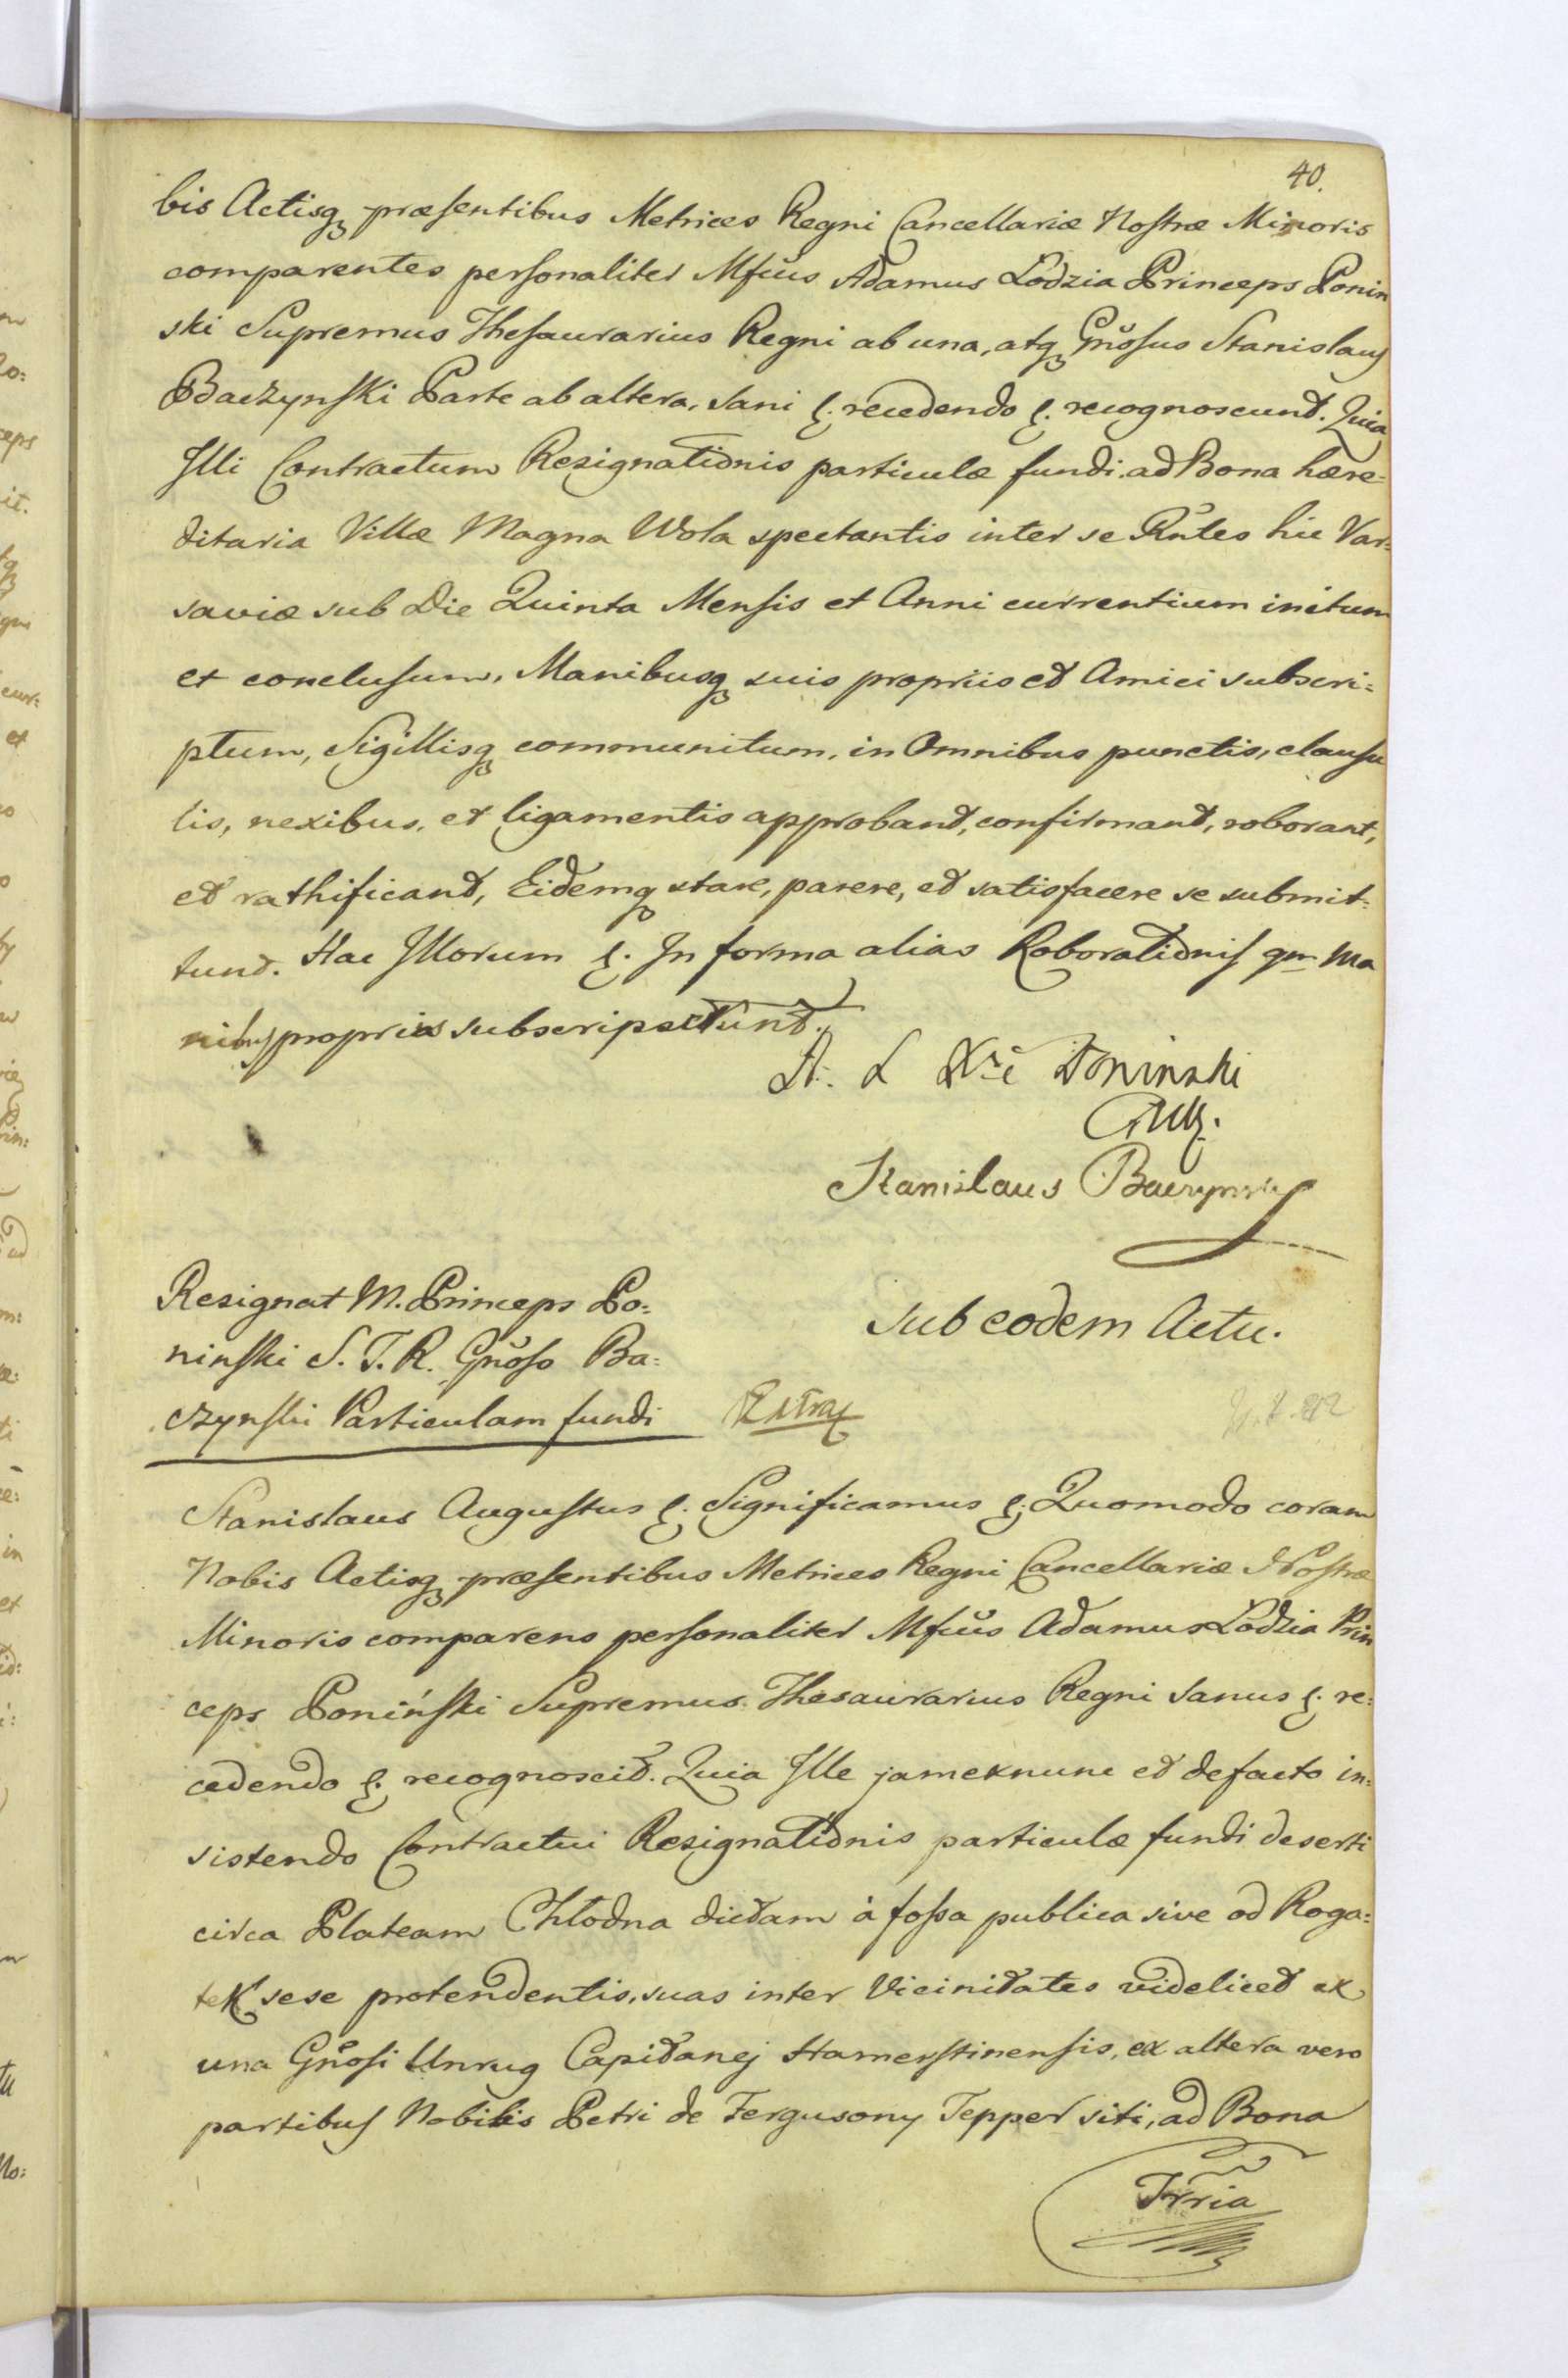 40.
bis Actisq́ præsentibus Metrices Regni Cancellariæ Nostræ Minoris
comparentes personaliter Mfcus Adamus Lodzia Princeps Ponin
ski Supremus Thesaurarius Regni ab una, atq́ Gnosus Stanislaus
Baczynski Parte ab altera, sani &. recedendo &. recognoscunt. Quia
Illi Contractum Resignationis particulæ fundi ad Bona hære=
ditaria Villæ Magna Wola spectantis inter se Rntes hic Var=
saviæ sub Die Quinta Mensis et Anni currentium initum
et conclusum, Manibusq́ suis propriis et Amici subscri=
ptum, Sigillisq́ communitum, in Omnibus punctis, clausu
lis, nexibus, et ligamentis approbant, confirmant, roborant,
et rathificant, Eidemq́ stare, parere, et satisfacere se submit=
tunt. Hac Illorum &. In forma alias Roborationis qm Ma
nibus propriis subscripserunt.
A. L Xże Poninski
Stanislaus Baczynski
Resignat M. Princeps Po=
ninski S. T. R. Gnoso Ba=
czynski Particulam fundi
Sub eodem Actu.
Extrax
Stanislaus Augustus &. Significamus &. Quomodo coram
Nobis Actisq́ præsentibus Metrices Regni Cancellariæ Nostræ
Minoris comparens personaliter Mfcus Adamus Lodzia Prin
ceps Poniński Supremus Thesaurarius Regni Sanus &. re=
cedendo &. recognoscit. Quia Ille jam ex nunc et de facto in=
sistendo Contractui Resignationis particulæ fundi deserti
circa Plateam Chłodna dictam à fossa publica sive od Roga=
tek sese protendentis, suas inter Vicinitates videlicet ex
una Gnosi Unrug Capitanej Hamerstinensis, ex altera vero
partibus Nobilis Petri de Fergusony Tepper siti, ad Bona